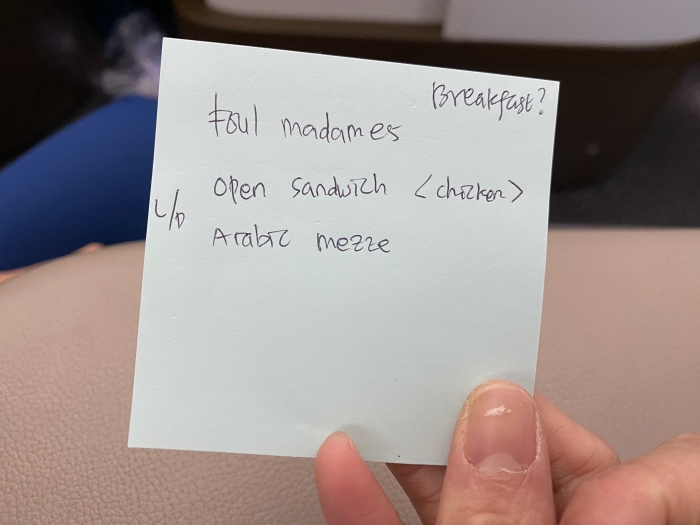 Breakfast?
Foul madames
open sandwich <chicken>
L/D
Arabic mezze